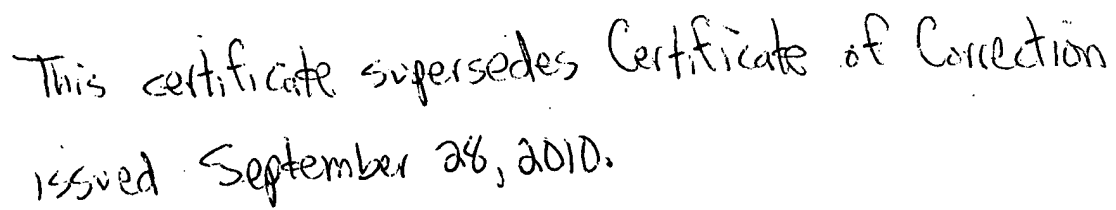 This certificate supersedes Certificate of Correction
issued September 28, 2010.